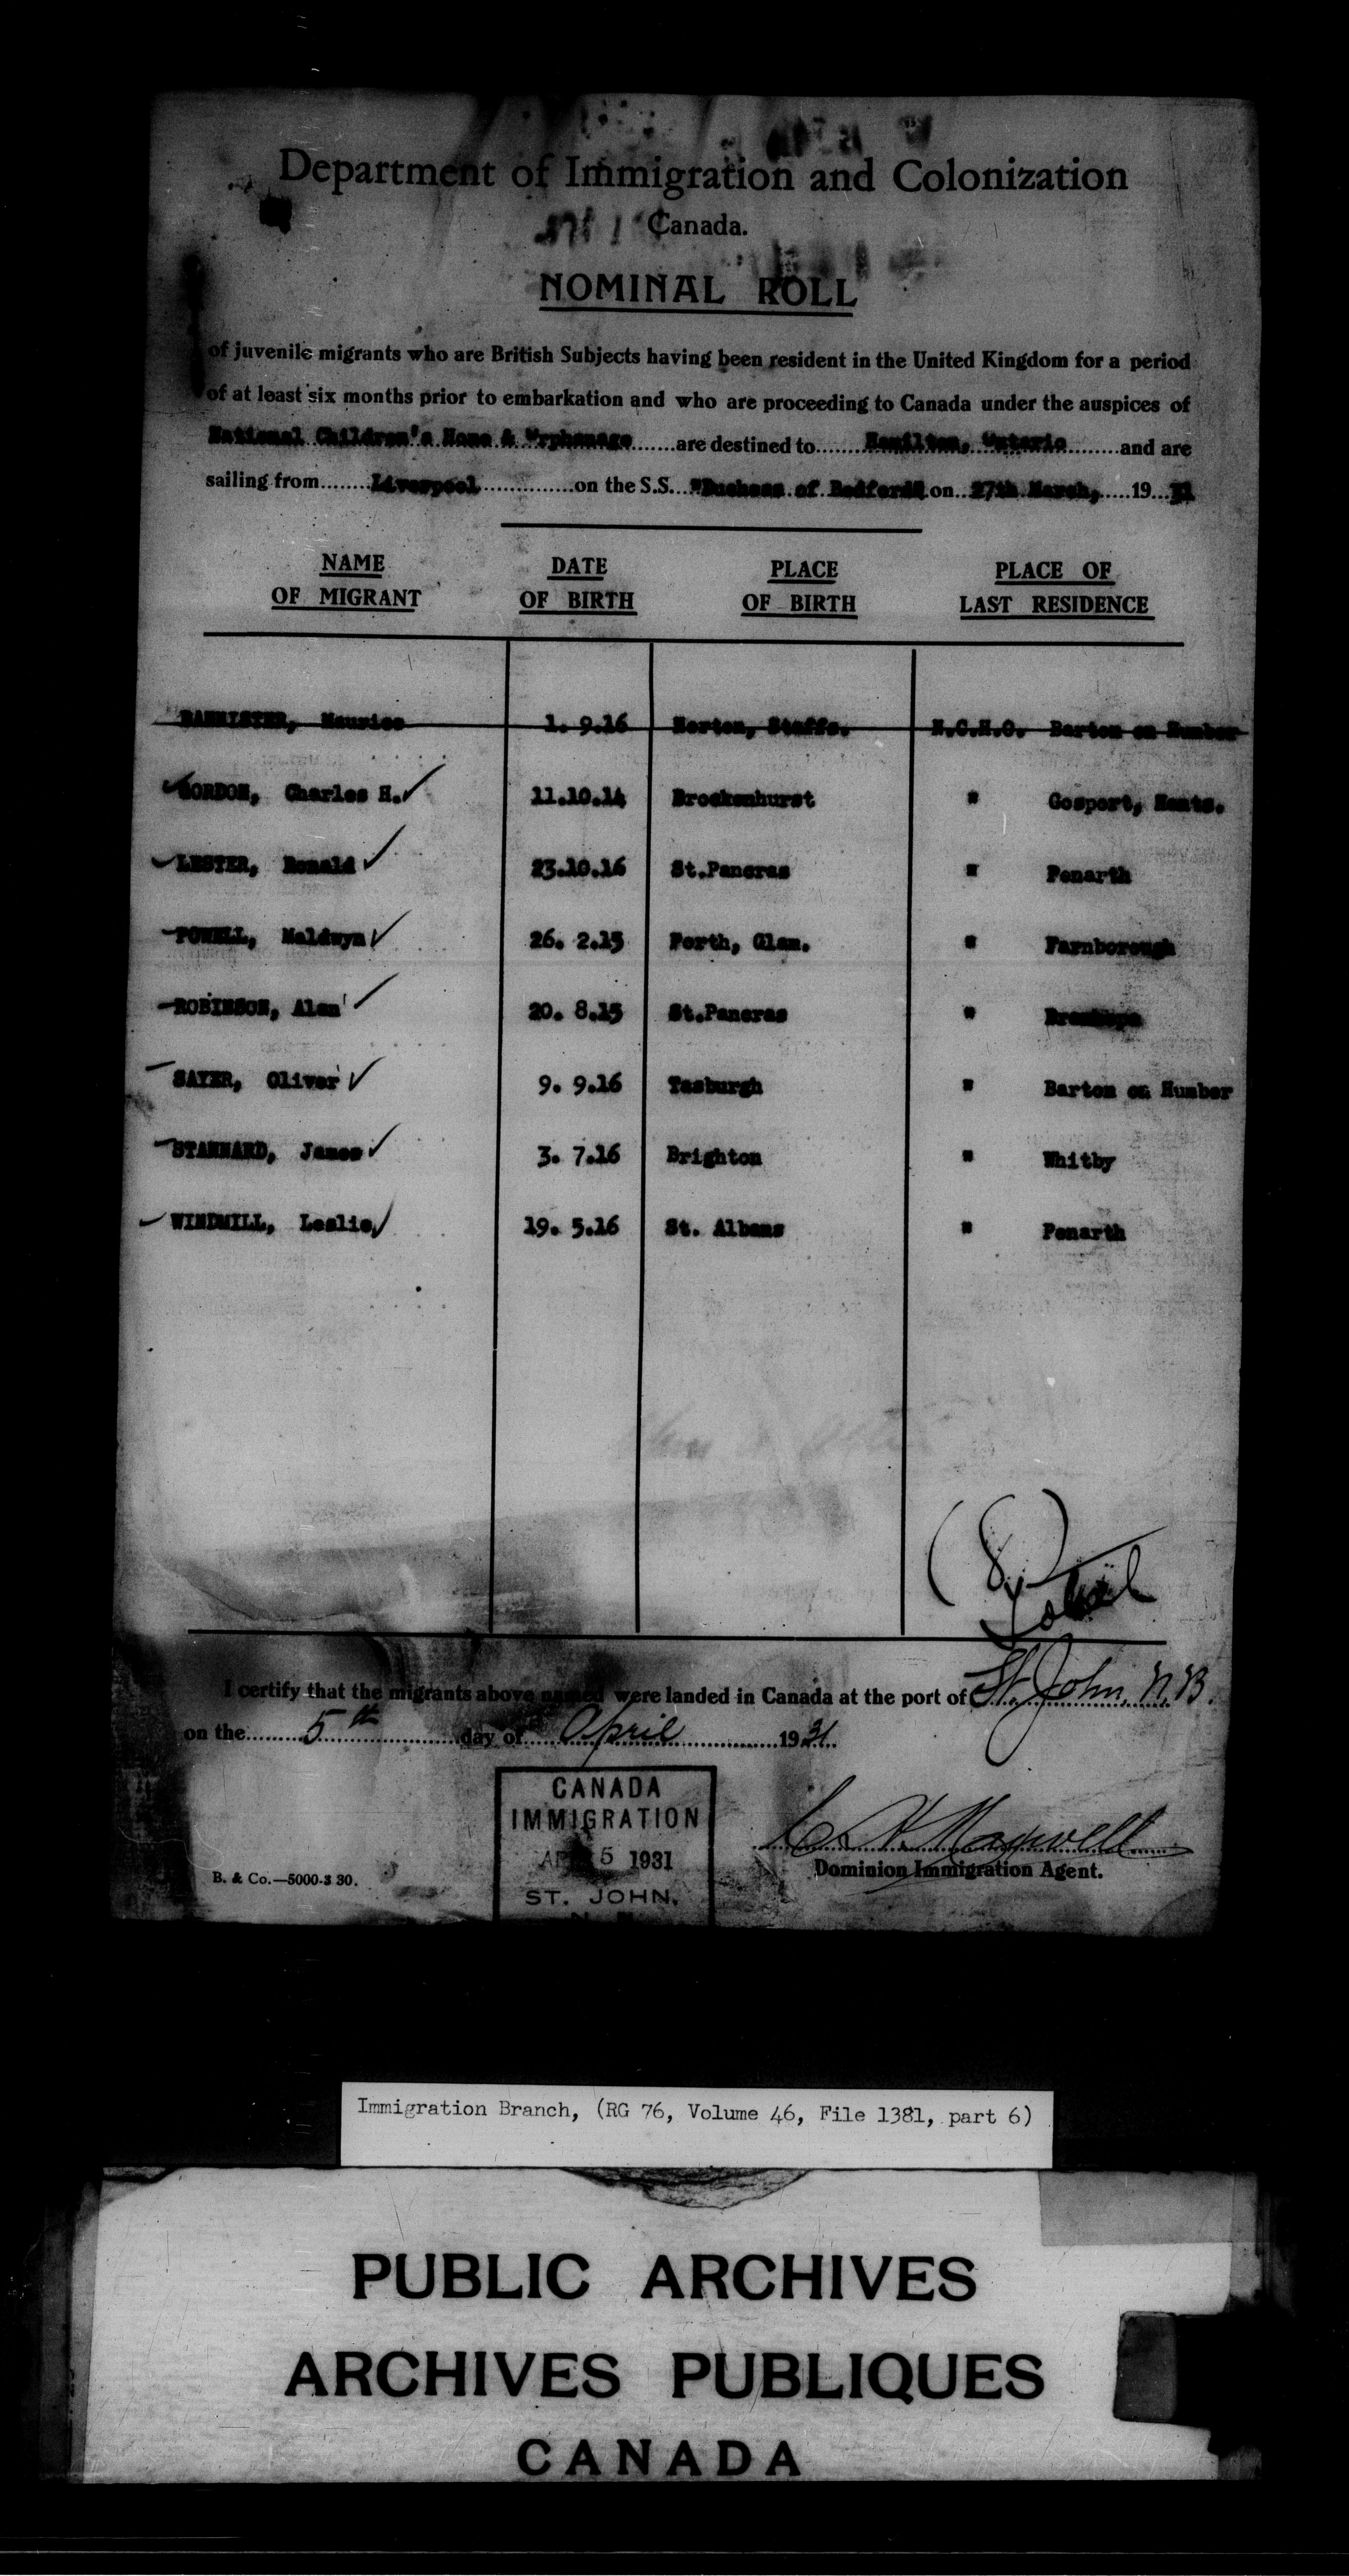 Department of Immigration and Colonization
Canada.
NOMINAL ROLL
of juvenile migrants who are British Subjects having been resident in the United Kingdom for a period
of at least six months prior to embarkation and who are proceeding to Canada under the auspices of
National Children's Home & Orphanage are destined to Hamilton, Ontario and are
sailing from Liverpool on the S.S. "Duchess of Bedford" on 27th March, 19 31
NAME OF MIGRANT DATE OF BIRTH PLACE OF BIRTH PLACE OF LAST RESIDENCE
BANNISTER, Maurice 1. 9.16 Norton, Staffs. N.C.H.O. Barton on Humber
GORDON, Charles H. 11.10.14 Brockenhurst " Gosport, Hants.
LESTER, Ronald 23.10.16 St.Pancras " Penarth
POWELL, Maldwyn 26. 2.15 Porth, Glam. " Farnborough
ROBINSON, Alan 20. 8.15 St.Pancras "
SAYER, Oliver 9. 9.16 Tasburgh " Barton on Humber
STANNARD, James 3. 7.16 Brighton " Whitby
WINDMILL, Leslie 19. 5.16 St. Albans " Penarth
(8)
I certify that the migrants above named were landed in Canada at the port of St. John, N.B.
on the 5th day of April 1931.
CANADA
IMMIGRATION
APR 5 1931
ST. JOHN,
C. H. Maxwell
Dominion Immigration Agent.
B. & Co.—5000-3 30.
Immigration Branch, (RG 76, Volume 46, File 1381, part 6)
PUBLIC ARCHIVES
ARCHIVES PUBLIQUES
CANADA